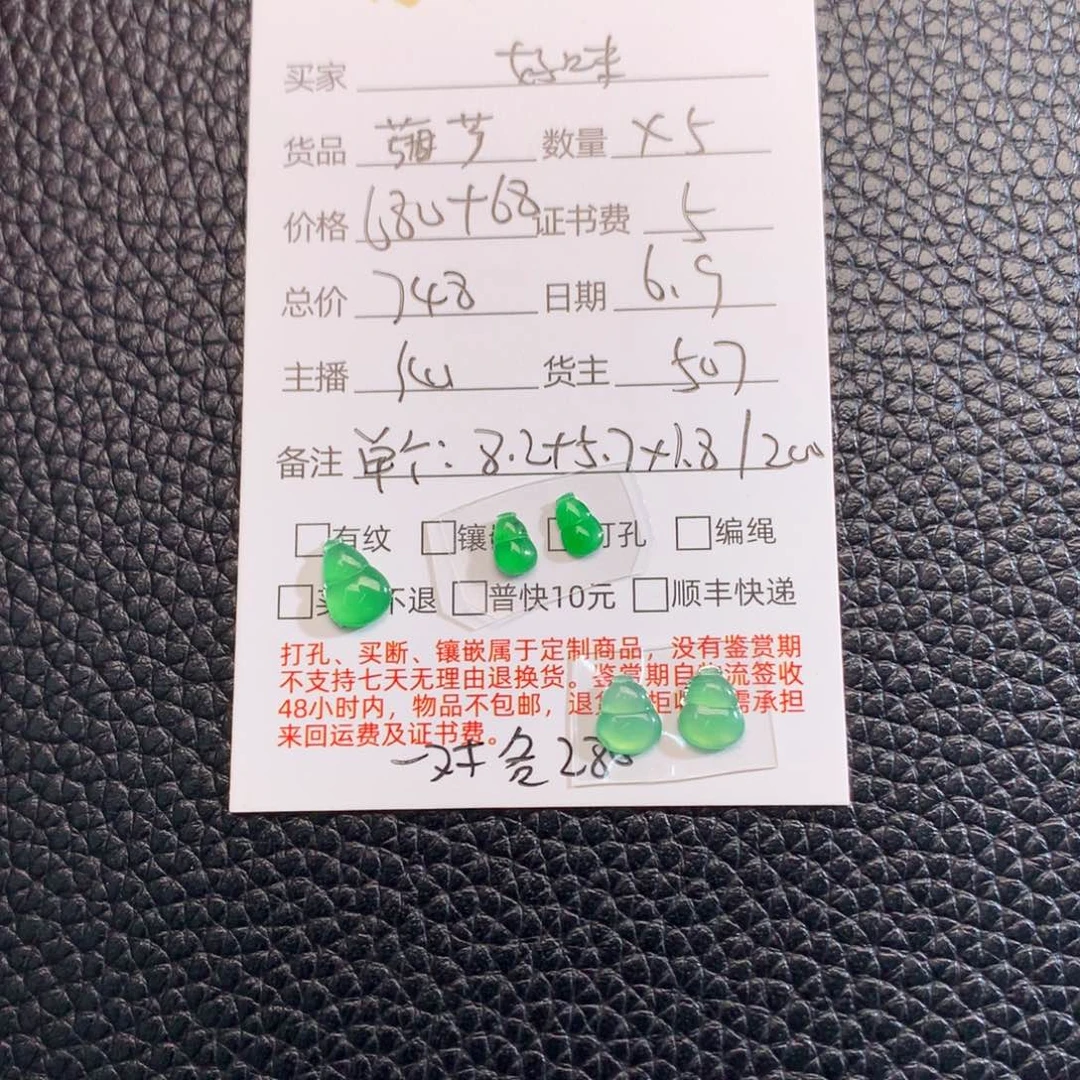 买家 好味
货品 葫芦 数量 ×5
价格 680+68 证书费 5
总价 748 日期 6.9
主播 货主 507
备注 单个: 8.2+5.7×1.8 / 200
□有纹 □镶 □打孔 □编绳
□ 不退 □普快10元 □顺丰快递
打孔、买断、镶嵌属于定制商品，没有鉴赏期
不支持七天无理由退换货。鉴赏期自 流签收
48小时内，物品不包邮，退 拒 需承担
来回运费及证书费。
一对各280